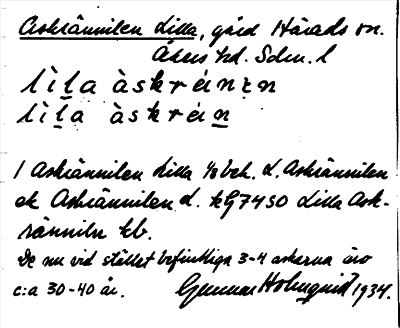 Askrännilen Lilla, gård Härads sn.
Åkers hd. Sdm. l
lìla àskrèinɛn
lìla àskrèin
/ Askrännilen Lilla ½ beb. d. Askrännilen
ek Askrännilen d. kG 7430 Lilla Ask-
ränniln kb.
De nu vid stället befintliga 3-4 askarna äro
c:a 30-40 år. Gunnar Holmquist 1934.